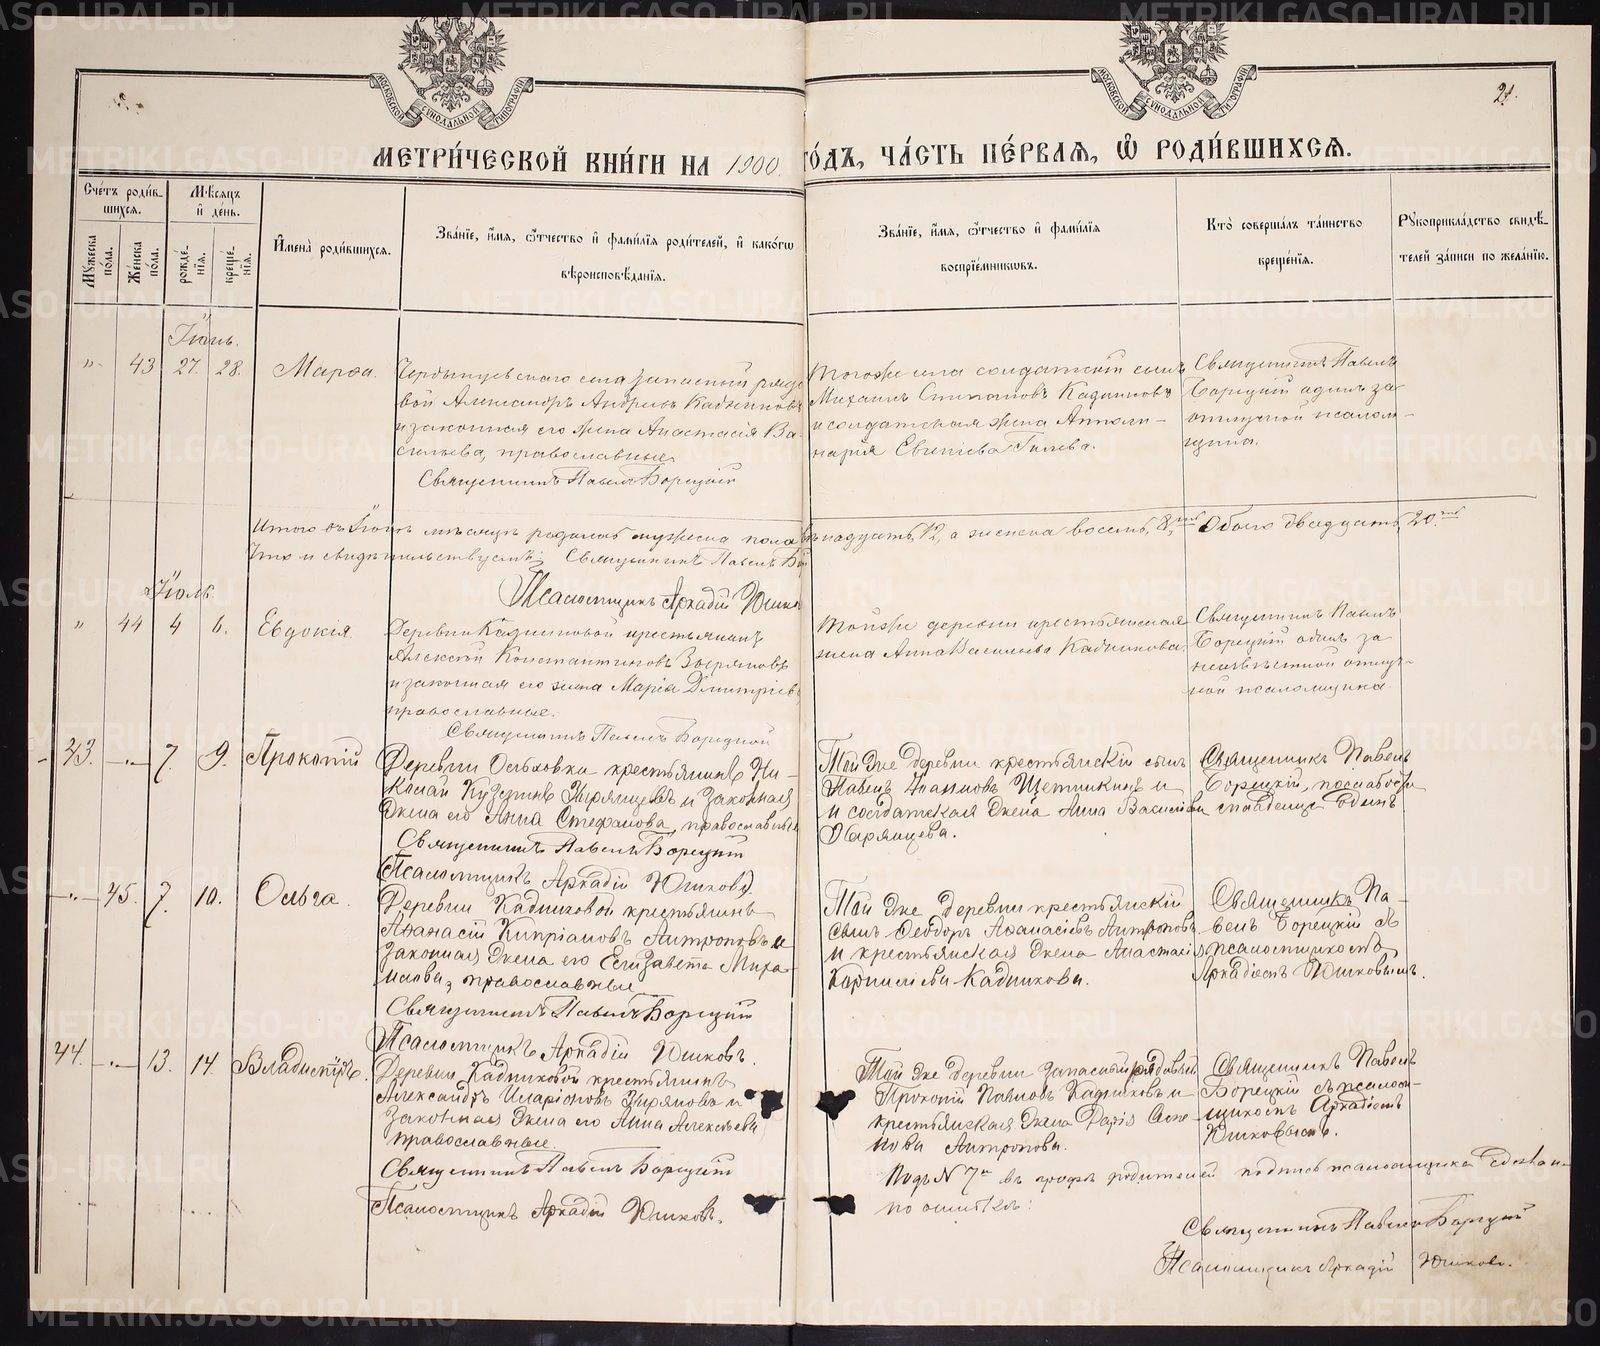 METRIKI.GASO-URAL.RU
21.
МОСКОВСКОЙ СѴНОДАЛЬНОЙ ТИПОГРАФІИ
МОСКОВСКОЙ СѴНОДАЛЬНОЙ ТИПОГРАФІИ
МЕТРИ́ЧЕСКОЙ КНИ́ГИ НА 1900 ГО́ДЪ, ЧА́СТЬ ПЕ́РВАЯ, Ѽ РОДИ́ВШИХСЯ.
Сче́тъ роди́в-
шихся.
Му́жеска
по́ла.
Же́нска
по́ла.
Мѣ́сяцъ
и҆ де́нь.
рожде́-
нїя.
креще́-
нїя.
И҆мена̀ роди́вшихся.
Зва́нїе, и҆́мя, ѻ҆́тчество и҆ фами́лїя роди́телей, и҆ како́гѡ
вѣроисповѣ́данїя.
Зва́нїе, и҆́мя, ѻ҆́тчество и҆ фами́лїя
воспрїе́мниковъ.
Кто̀ соверша́лъ та́инство
креще́нїя.
Рꙋкоприкла́дство свидѣ́-
телей за́писи по жела́нїю.
Іюнь.
"
43
27.
28.
Марѳа.
села запасный рядо-
вой Александръ Андреевъ Кадниковъ
и законная его жена Анастасія Ва-
сильева, православные.
Священникъ Павелъ Борецкій
того же села солдатскій сынъ
Михаилъ Степановъ Кадниковъ
и солдатская жена Аполи-
нарія Евгеніева Гилева.
Священникъ Павелъ
Борецкій одинъ за
отлучкой псалом-
щика.
Итого въ Іюнѣ мѣсяцѣ родилось мужеска пола двѣнадцать, 12, а женска восемь, 8, Обоего двадцать, 20.
Что и свидѣтельствуемъ: Священникъ Павелъ Бо
Псаломщикъ Аркадій Юшко
Іюль
"
44
4
6.
Евдокія.
Деревни Кадниковой крестьянинъ
Алексѣй Константиновъ Зыряновъ
и законная его жена Марія Димитріев
православные.
Священникъ Павелъ Борецкой
той же деревни крестьянская
жена Анна Васильева Кадникова.
Священникъ Павелъ
Борецкій одинъ за
неизвѣстной отлуч-
кой псаломщика.
43.
-"-
7.
9.
Прокопій
Деревни Ольховки крестьянинъ Ни-
колай Кузминъ Ширинцевъ и законная
жена его Анна Стефанова, православные
Священникъ Павелъ Борецкій
Псаломщикъ Аркадій Юшковъ
Той же деревни крестьянскій сынъ
Павелъ Іоанновъ Щетинкинъ и
и солдатская жена Анна Васильева
Священникъ Павелъ
Борецкій, по слабости
младенца одинъ
-"-
45.
7.
10.
Ольга.
Деревни Кадниковой крестьянинъ
Аѳанасій Кипріановъ Антроповъ и
законная жена его Елизавета Миха-
илова, православные
Священникъ Павелъ Борецкій
Псаломщикъ Аркадій Юшковъ.
Той же деревни крестьянскій
сынъ Ѳеодоръ Аѳанасіевъ Антроповъ
и крестьянская жена Анастасія
Корниліева Кадникова.
Священникъ Па-
велъ Борецкій съ
псаломщикомъ
Аркадіемъ Юшковымъ.
44.
-"-
13.
14.
Владиміръ.
Деревни Кадниковой крестьянинъ
Александръ Иларіоновъ Зыряновъ и
законная жена его Анна Алексѣева
православные.
Священникъ Павелъ Борецкій
Псаломщикъ Аркадій Юшковъ.
Той же деревни запасный рядовый
Прокопій Павловъ Кадниковъ и
крестьянская жена Дарія
Антропова.
Священникъ Павелъ
Борецкій съ псалом-
щикомъ Аркадіемъ
Юшковымъ.
Подъ N 7мъ въ графѣ родителей подпись псаломщика
по ошибкѣ:
Священникъ Павелъ Борецкій
Псаломщикъ Аркадій Юшковъ.